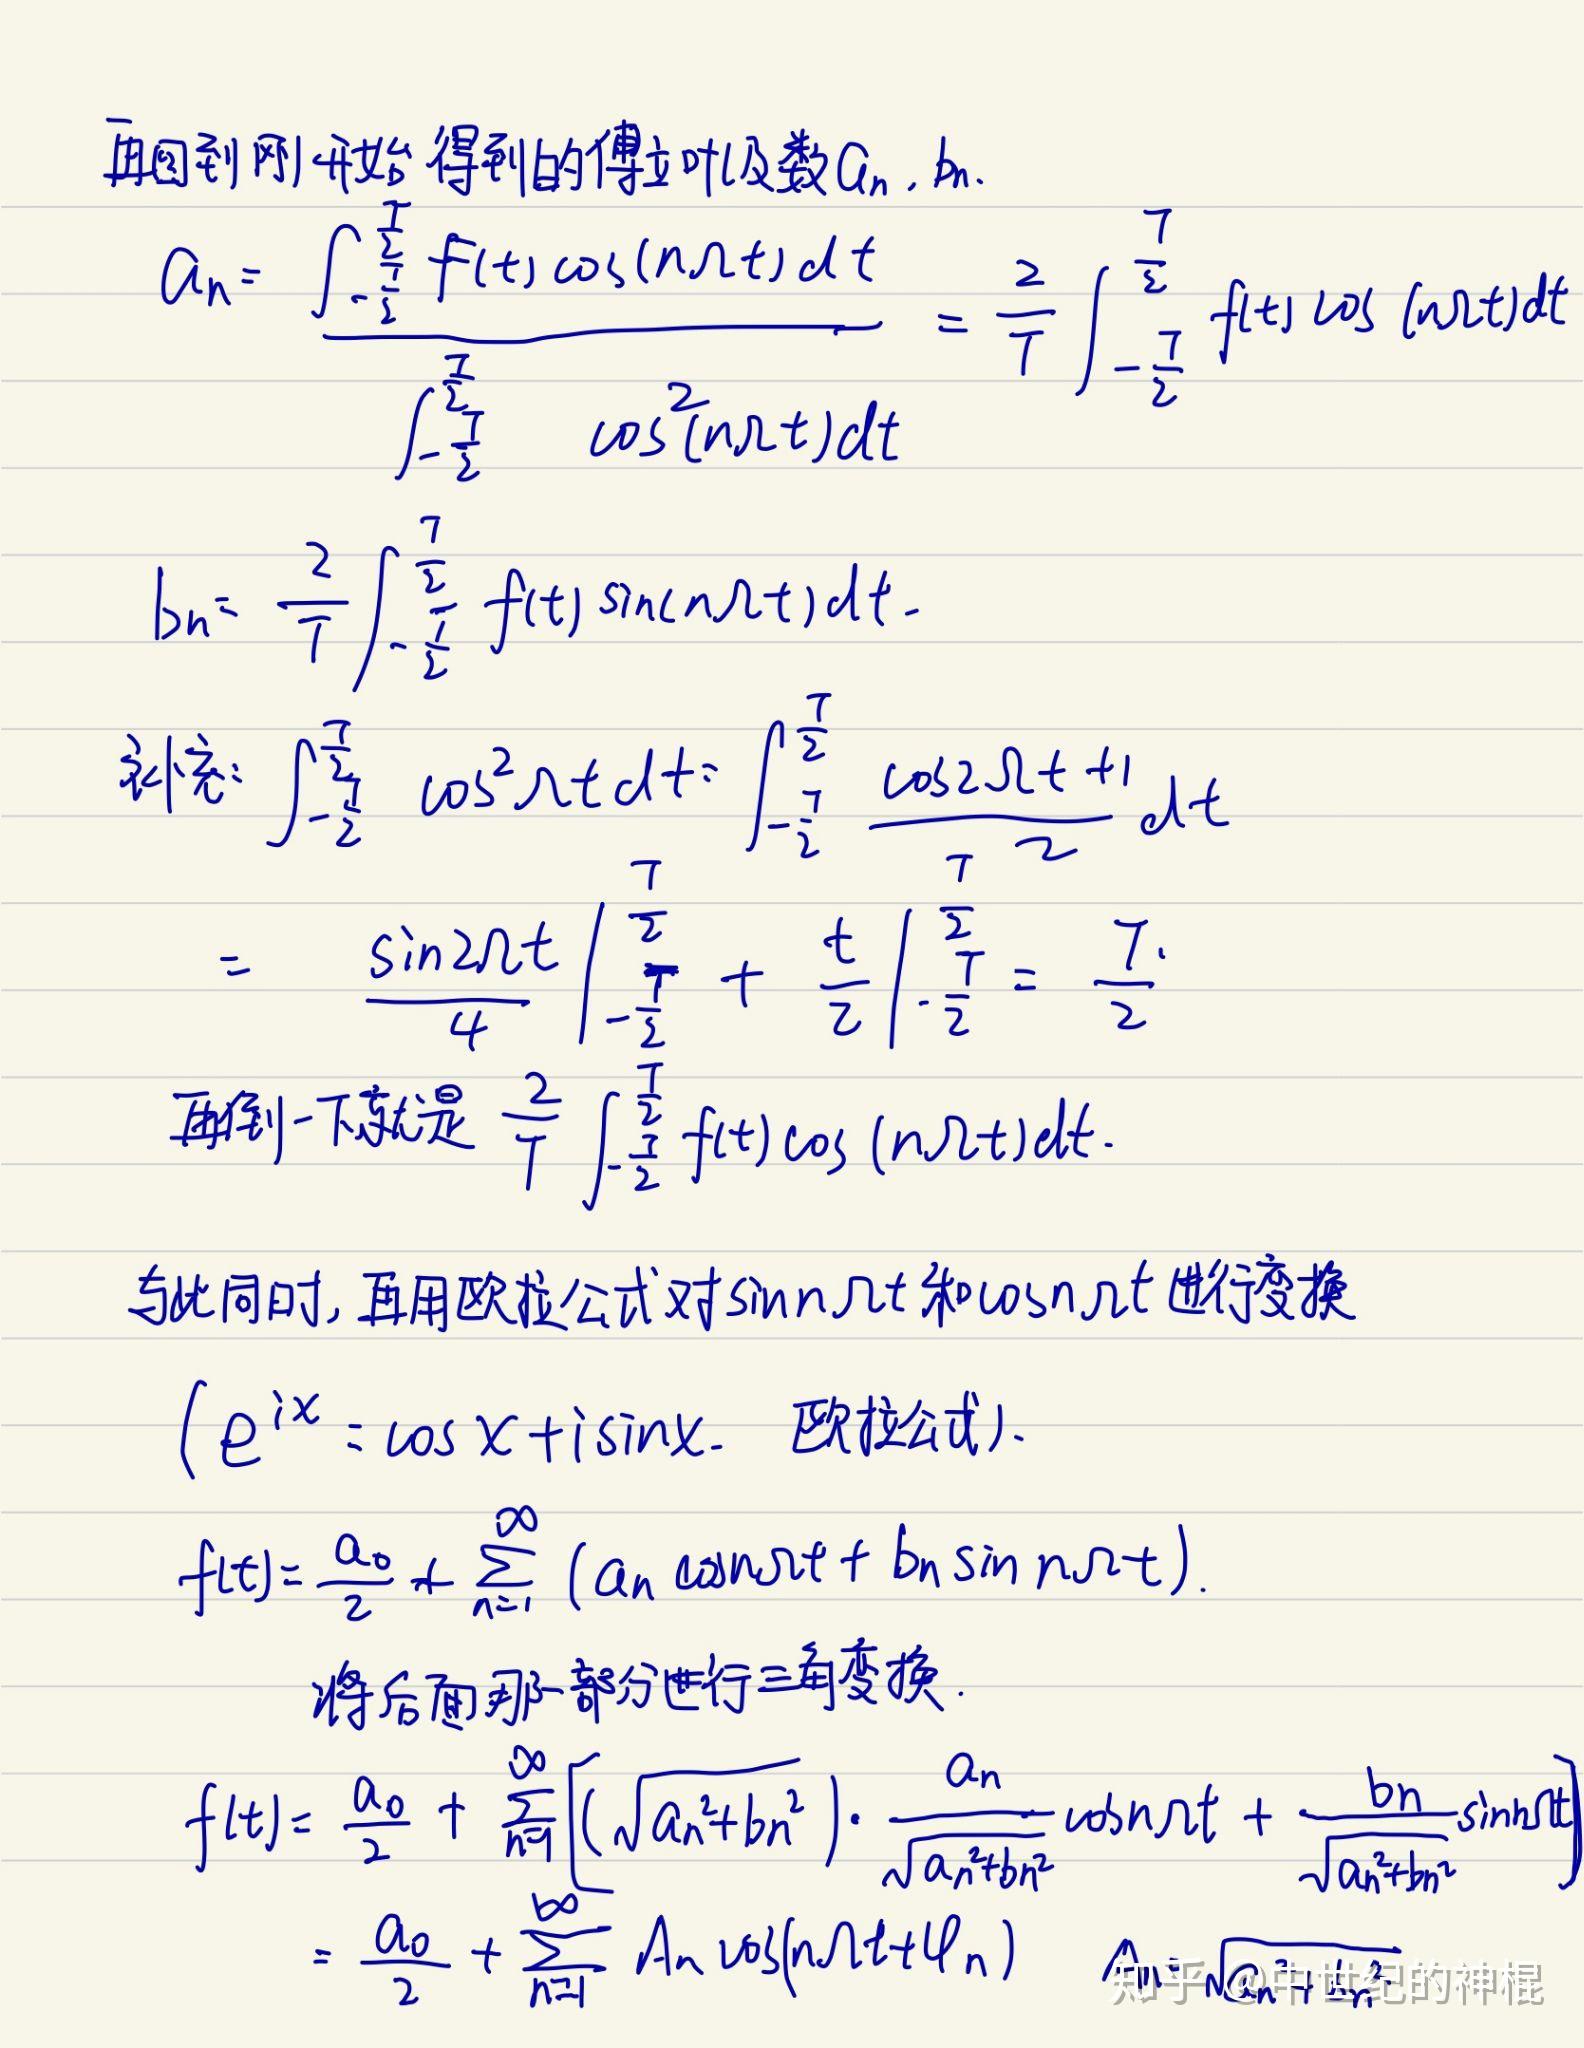 再回到刚开始得到的傅立叶级数aₙ, bₙ.
aₙ = ∫_{-T/2}^{T/2} f(t)cos(nΩt)dt / ∫_{-T/2}^{T/2} cos²(nΩt)dt = 2/T ∫_{-T/2}^{T/2} f(t)cos(nΩt)dt
bₙ = 2/T ∫_{-T/2}^{T/2} f(t)sin(nΩt)dt.
补充: ∫_{-T/2}^{T/2} cos²Ωt dt = ∫_{-T/2}^{T/2} (cos2Ωt+1)/2 dt
= sin2Ωt/4 |_{-T/2}^{T/2} + t/2 |_{-T/2}^{T/2} = T/2.
再倒一下就是 2/T ∫_{-T/2}^{T/2} f(t)cos(nΩt)dt.
与此同时, 再用欧拉公式对sinnΩt和cosnΩt进行变换
(e^{ix} = cosx+isinx. 欧拉公式).
f(t) = a₀/2 + ∑_{n=1}^{∞} (aₙcosnΩt + bₙsinnΩt).
将后面那一部分进行三角变换.
f(t) = a₀/2 + ∑_{n=1}^{∞} [(√(aₙ²+bₙ²))·aₙ/√(aₙ²+bₙ²) cosnΩt + bₙ/√(aₙ²+bₙ²) sinnΩt]
= a₀/2 + ∑_{n=1}^{∞} Aₙcos(nΩt+φₙ) Aₙ=√(aₙ²+bₙ²)
知乎 @中世纪的神棍